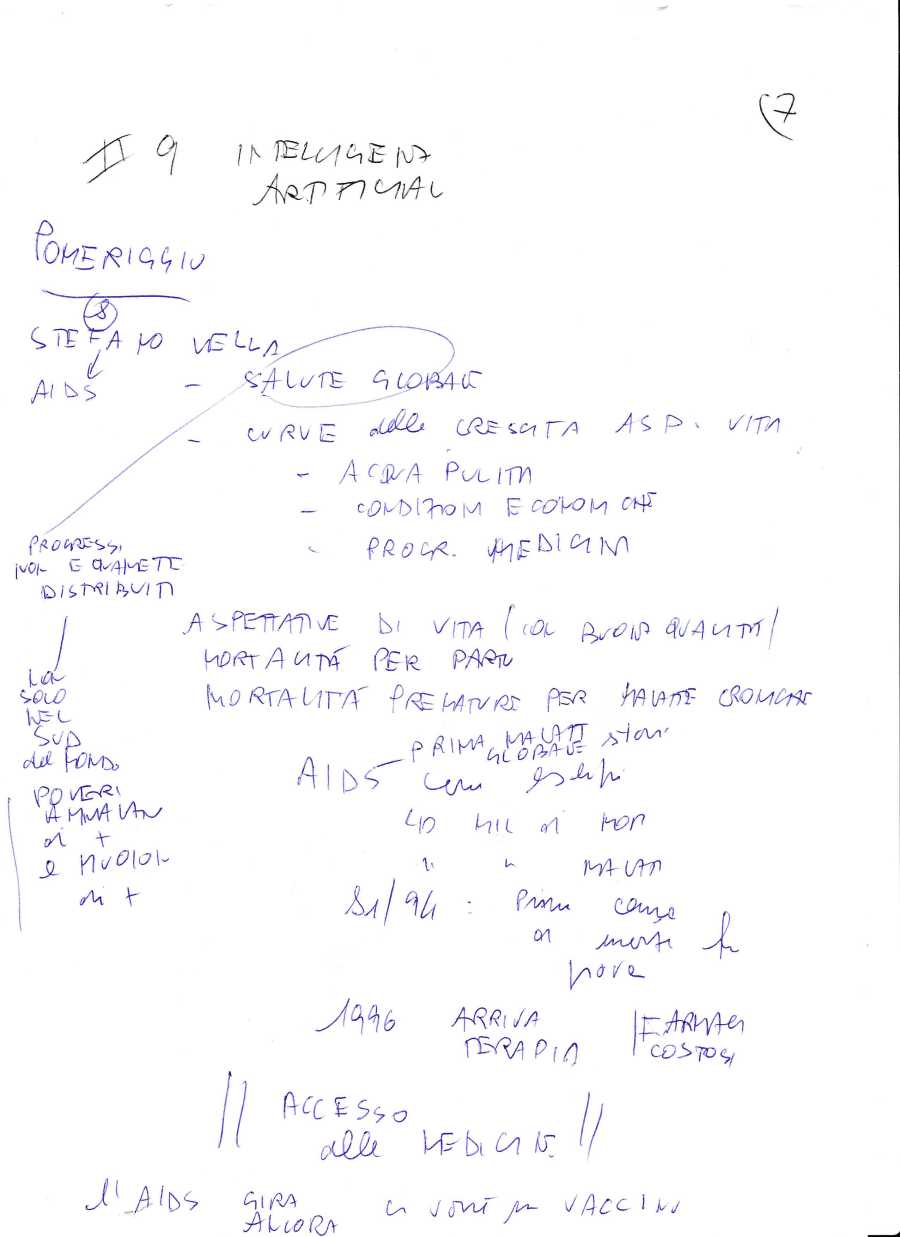 7
II 9 INTELLIGENZ
ARTIFICIAL
POMERIGGIO
8
STEFANO VELLA
AIDS - SALUTE GLOBALE
- CURVE delle CRESCITA ASP. VITA
- ACQUA PULITA
- CONDIZIONI ECONOMICHE
- PROGR. MEDICINA
PROGRESSI
NON EQUAMENTE
DISTRIBUITI
ASPETTATIVE DI VITA (con BUONA QUALITÀ)
MORTALITÀ PER PARTO
MORTALITÀ PREMATURE PER MALATTIE CRONICHE
NON
SOLO
NEL
SUD
del MONDO
POVERI
AMMALAN
di +
e MUOION
di +
PRIMA MALATTI
GLOBALE
AIDS come
40 MIL di MORTI
" " MALATI
81/94 : Prima causa
di morte
1996 ARRIVA FARMACI
TERAPIA COSTOSI
|| ACCESSO
alle MEDICINE ||
l'AIDS GIRA
ANCORA ci vorrà un VACCINO